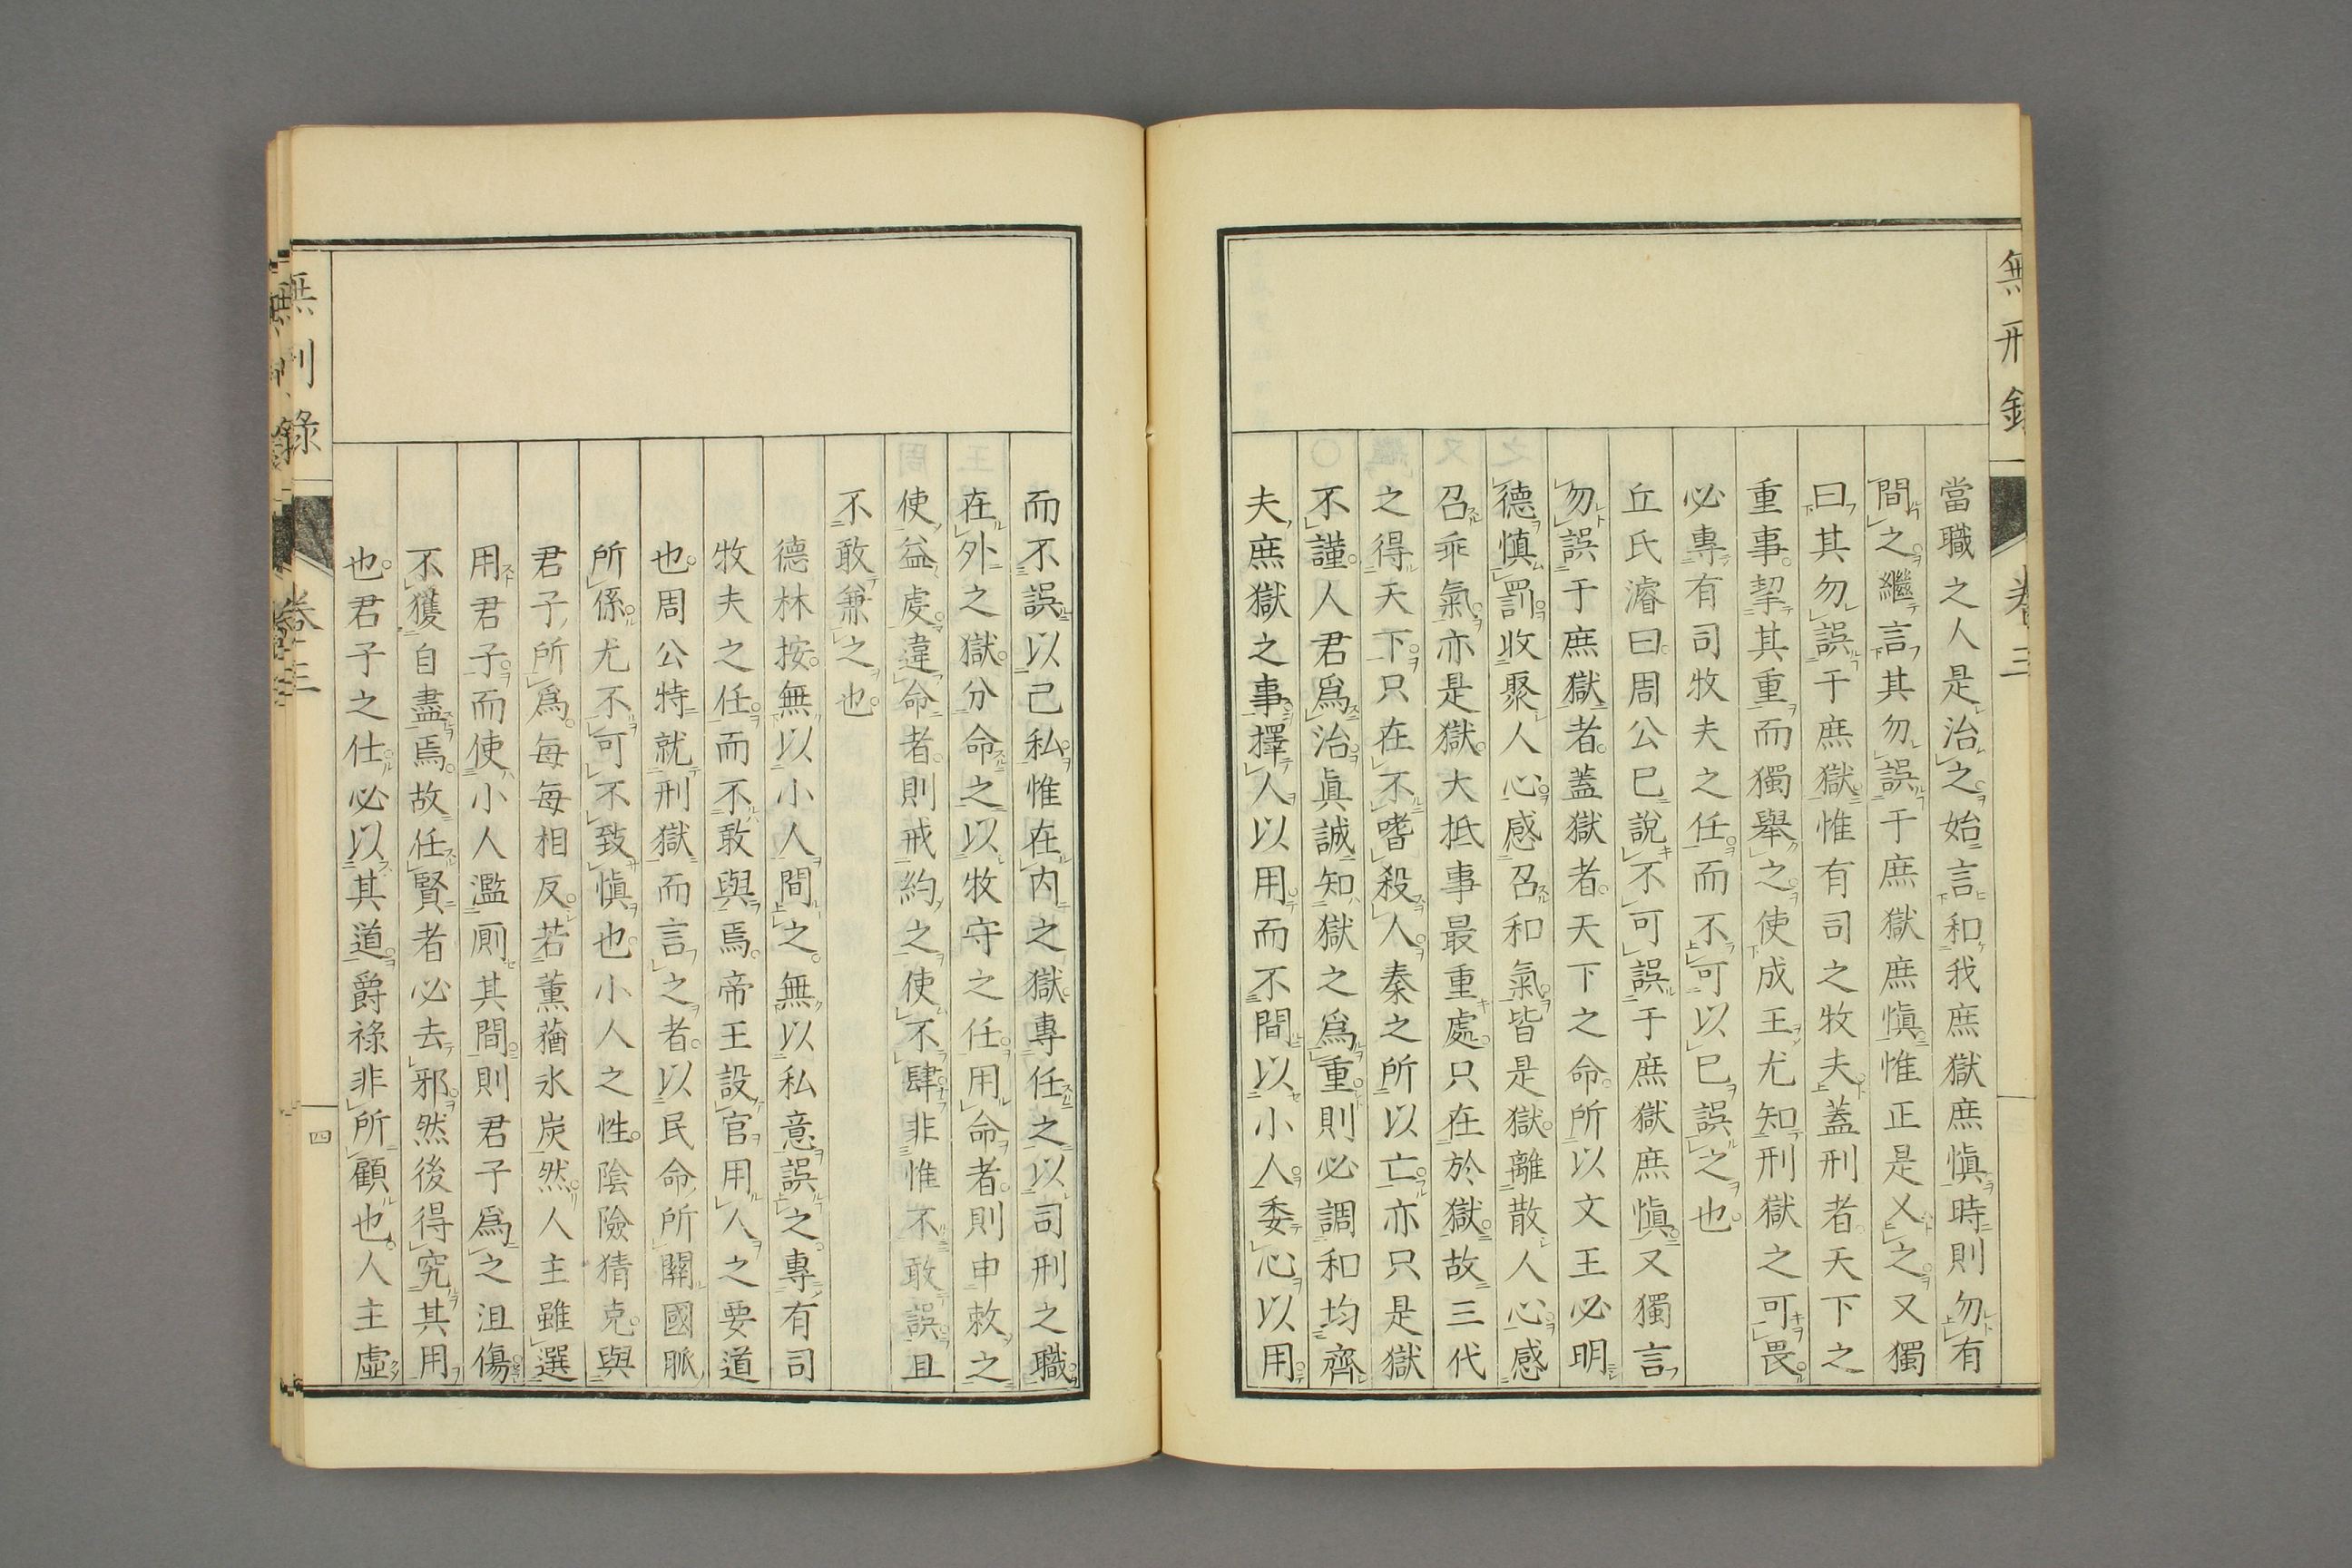 無刑錄
卷三
當職之人是治之始言和我庶獄庶愼時則勿有
間之繼言其勿誤于庶獄庶愼惟正是乂之又獨
曰其勿誤于庶獄惟有司之牧夫蓋刑者天下之
重事挈其重而獨舉之使成王尤知刑獄之可畏
必專有司牧夫之任而不可以已誤之也
丘氏濬曰周公已說不可誤于庶獄庶愼又獨言
勿誤于庶獄者蓋獄者天下之命所以文王必明
德愼罰收聚人心感召和氣皆是獄離散人心感
召乖氣亦是獄大抵事最重處只在於獄故三代
之得天下只在不嗜殺人秦之所以亡亦只是獄
不謹人君爲治眞誠知獄之爲重則必調和均齊
夫庶獄之事擇人以用而不間以小人委心以用
而不誤以己私惟在內之獄專任之以司刑之職
在外之獄分命之以牧守之任用命者則申敕之
使益虔違命者則戒約之使不肆非惟不敢誤且
不敢兼之也
德林按無以小人間之無以私意誤之專有司
牧夫之任而不敢與焉帝王設官用人之要道
也周公特就刑獄而言之者以民命所關國脈
所係尤不可不致愼也小人之性陰險猜克與
君子所爲每每相反若薰蕕氷炭然人主雖選
用君子而使小人濫厠其間則君子爲之沮傷
不獲自盡焉故任賢者必去邪然後得究其用
也君子之仕必以其道爵祿非所顧也人主虛
無刑錄
卷三
四